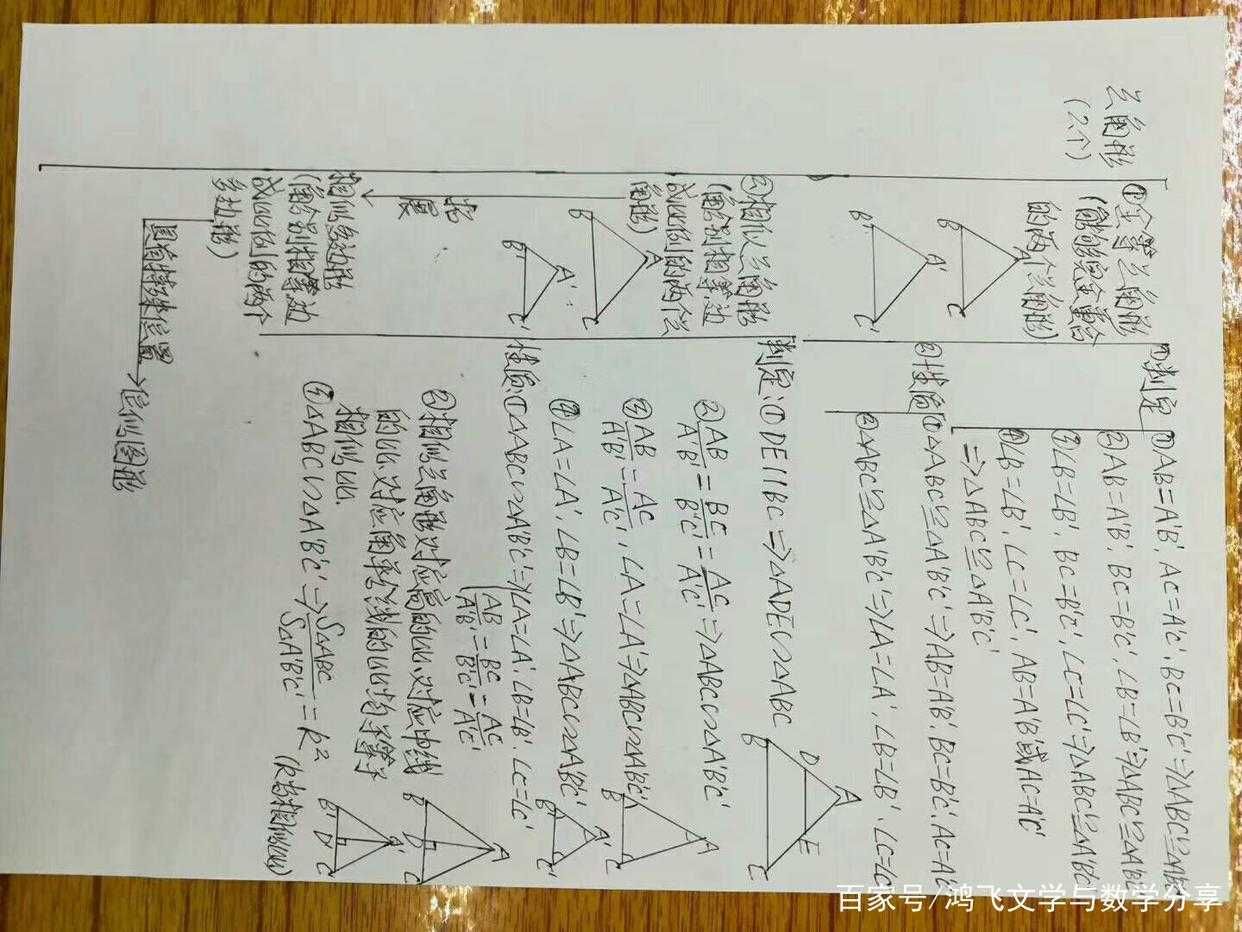 三角形
(2个)
①全等三角形
(能够完全重合
的两个三角形)
B
C
B'
A'
C'
①判定
①AB=A'B', AC=A'C', BC=B'C'⇒△ABC≌△A'B'
②AB=A'B', BC=B'C', ∠B=∠B'⇒△ABC≌△A'B'C'
③∠B=∠B', BC=B'C', ∠C=∠C'⇒△ABC≌△A'B'C'
④∠B=∠B', ∠C=∠C', AB=A'B'或AC=A'C'
⇒△ABC≌△A'B'C'
②性质
①△ABC≌△A'B'C'⇒AB=A'B', BC=B'C', AC=A'C'
②△ABC≌△A'B'C'⇒∠A=∠A', ∠B=∠B', ∠C=∠C'
②相似三角形
(角分别相等、边
成比例的两个三
角形)
A
B
C
A'
B'
C'
判定:①DE∥BC⇒△ADE∽△ABC
A
D
E
B
C
②AB/A'B'=BC/B'C'=AC/A'C'⇒△ABC∽△A'B'C'
③AB/A'B'=AC/A'C', ∠A=∠A'⇒△ABC∽△A'B'C'
④∠A=∠A', ∠B=∠B'⇒△ABC∽△A'B'C'
性质:①△ABC∽△A'B'C'⇒∠A=∠A', ∠B=∠B', ∠C=∠C'
AB/A'B'=BC/B'C'=AC/A'C'
②相似三角形对应高的比、对应中线
的比、对应角平分线的比均等于
相似比.
③△ABC∽△A'B'C'⇒S△ABC/S△A'B'C'=k²
(k为相似比)
A
B
D
C
A'
B'
D'
C'
拓展
相似多边形
(角分别相等、边
成比例的两个
多边形)
具有特殊位置
位似图形
百家号/鸿飞文学与数学分享